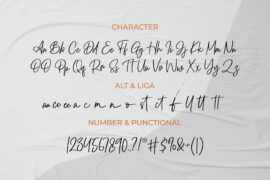 CHARACTER
Aa Bb Cc Dd Ee Ff Gg Hh Ii Jj Kk Mm Nn
Oo Pp Qq Rr Ss Tt Uu Vv Ww Xx Yy Zz
ALT & LIGA
NUMBER & PUNCTIONAL
1234567890.?!@#$%&+()